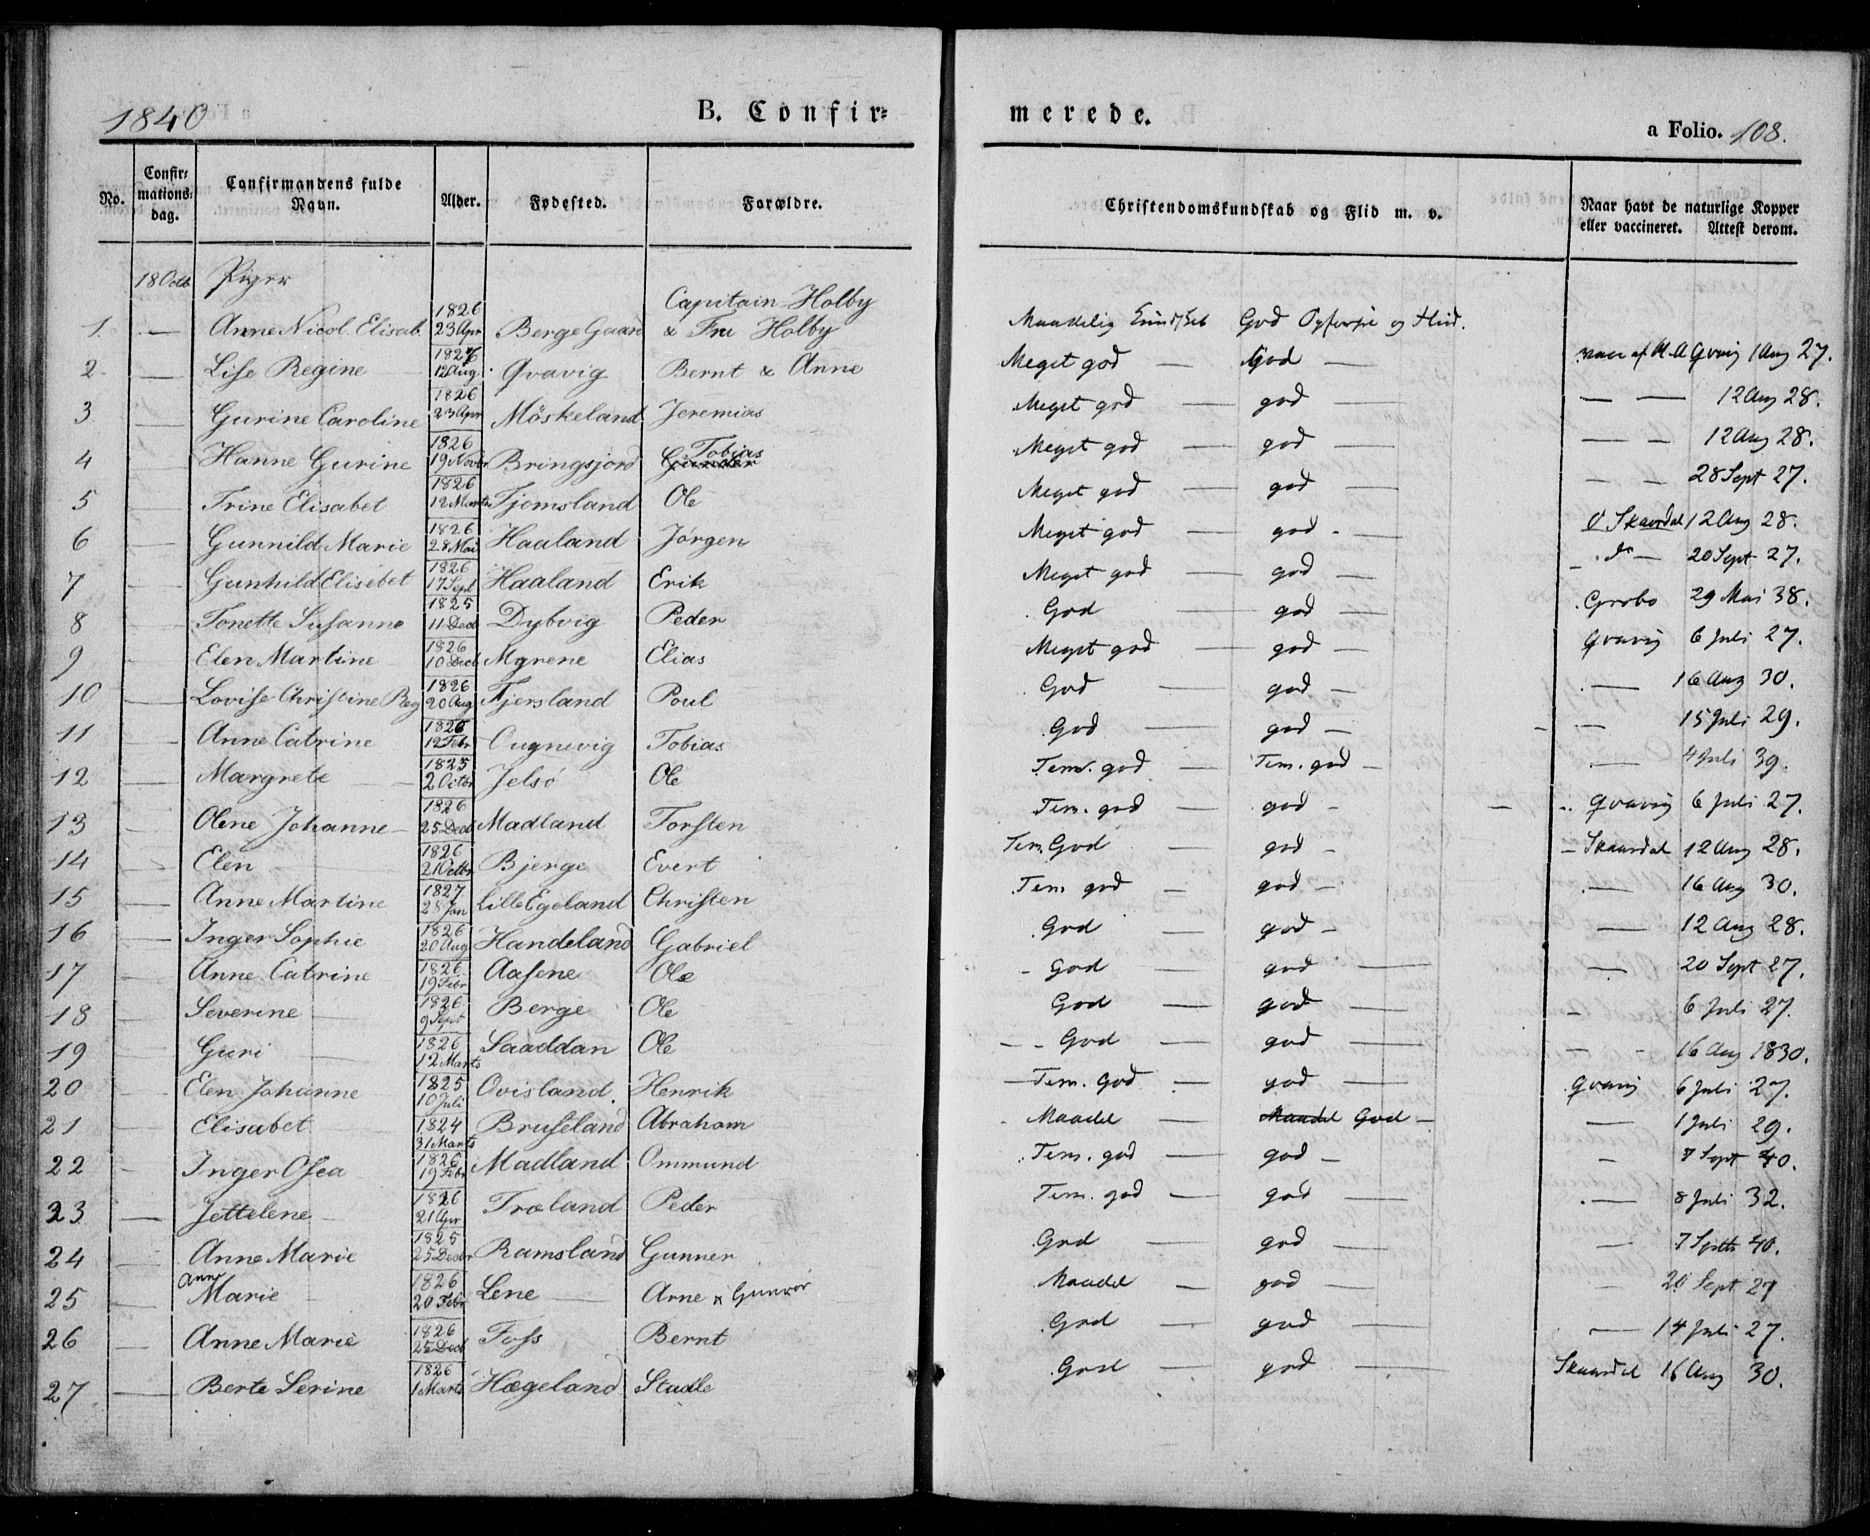 1840 B. Confirmerede. a Folio. 108.
No. Confirmationsdag. Confirmandens fulde Navn. Alder. Fødested. Forældre. Christendomskundskab og Flid m. v. Naar havt de naturlige Kopper eller vaccineret. Attest derom.
18 Octb Piger
1. — Anne Nicol. Elisab. 1826 23 Apr Berge Gaard Capitain Holby & Fru Holby Maadelig God og Flid.
2 — Lise Regine 1826 12 Aug. Qvavig Bernt & Anne Meget god — God — vacc af 1 Aug 27.
3 — Gurine Caroline 1826 23 Apr Möskeland Jeremias Meget god — god — — — 12 Aug 28.
4 — Hanne Gurine 1826 19 Novbr Bringsjord Gunder Tobias Meget god — god — — — 12 Aug 28.
5 — Trine Elisabet 1826 12 Marts Tjomsland Ole Meget god — god — — — 28 Sept 27.
6 — Gunnild Marie 1826 28 Mai Haaland Jørgen Meget god — god - O Skaardal 12 Aug 28.
7 — Gunhild Elisebet 1826 17 Sept Haaland Erik Meget god — god — do — 20 Sept 27.
8 — Tonette Susanne 1825 11 Decb Dybvig Peder God — god — Grobo 29 Mai 38.
9 - Elen Martine 1826 10 Decb Myrene Elias Meget god — god — Qvavig 6 Juli 27.
10 — Lovise Christine Reg 1826 20 Aug Fjersland Poul God — god — — 16 Aug 30.
11 — Anne Catrine 1826 12 Febr Ougnevig Tobias God — god — — 15 Juli 29.
12 — Margrete 1825 2 Octbr Jelsö Ole Tem. god — Tem. god — — 4 Juli 39.
13 — Olene Johanne 1826 25 Decb Madland Torsten Tem. god — god - — Qvavig 6 Juli 27.
14 — Elen 1826 21 Octbr Bjerge Evert Tem. God — god - Skaardal 12 Aug 28.
15 — Anne Martine 1827 28 Jan Lille Egeland Christen Tem god — god — — 16 Aug 30.
16 — Inger Sophie 1826 20 Aug Handeland Gabriel God — god — — 12 Aug 28.
17 — Anne Catrine 1826 19 Febr Aasene Ole God — god — — 20 Sept 27.
18 — Severine 1826 9 Sept Berge Ole God — god — - 6 Juli 27.
19 — Guri 1826 12 Marts Saaddan Ole God — god — - - 16 Aug 1830.
20 — Elen Johanne 1825 10 Juli Ovisland. Henrik Tem. God — god — Qvavig 6 Juli 27.
21 — Elisabet 1824 31 Marts Bruseland Abraham Maadel — Maadel God — — 1 Juli 29.
22 - Inger Osea 1826 19 Febr Madland Ommund Tem. god — god — - 7 Sept 40.
23 — Jettelene 1826 21 Apr Troland Peder Tem. god — god — — 8 Juli 32.
24 — Anne Marie 1825 25 Decbr Ramsland Gunner God — god — — 7 Septb 40.
25 — Anne Marie 1826 20 Febr Lene — Arne & Gunvor Maadel — god — 20 Sept 27
26 — Anne Marie 1826 25 Decb Foss Bernt God — god — — 14 Juli 27.
27 — Berte Serine 1826 1 Marts Hægeland Stadle God — god — Skaardal 16 Aug 30.